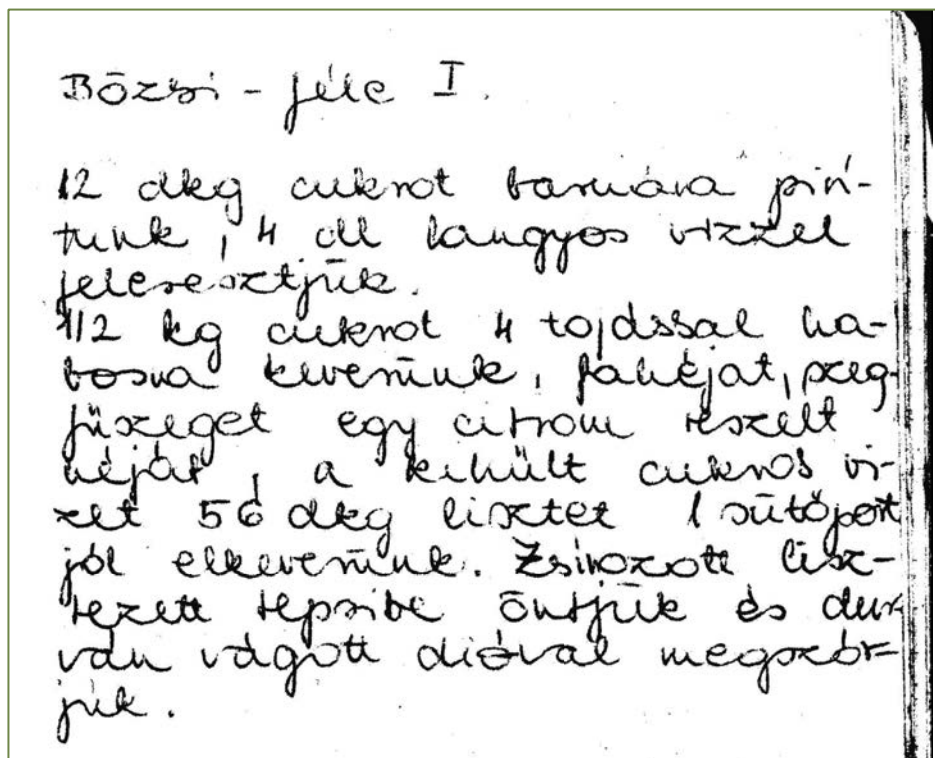 Bözsi - féle I.
12 dkg cukrot barnára pirí-
tunk, 4 dl langyos vizzel
feleresztjük.
1/2 kg cukrot 4 tojással ha-
bosra keverünk, fahéjat, szeg-
füszeget egy citrom reszelt
héját, a kihült cukros vi-
zet 56 dkg lisztet 1 sütőport
jól elkeverünk. Zsirozott lisz-
tezett tepsibe öntjük és dur-
ván vágott dióval megszór-
juk.